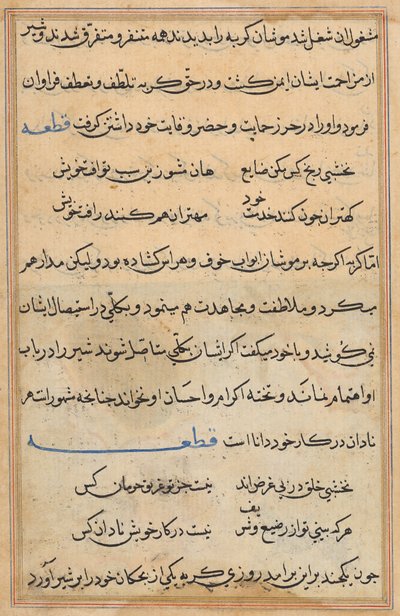 مشغول آن شغل شد موشان کربه را بدیدند همه متنفر و متفرق شدند و شیر
از مزاحمت ایشان ایمن کشت و در حق کربه تلطّف و تعطف فراوان
فرمود و او را در حرز حمایت و حضر وقایت خود داشتن کرفت قطعه
نخشبی رنج کس مکن ضایع هان شنو زین سبب نوافت خویش
کهتران چون کنند خدمت خود مهتران هم کنند رافت خویش
اما کربه اکرچه بر موشان ابواب خوف و هراس کشاده بود ولیکن مدارا هم
میکرد و ملاطفت و مجاهدت هم مینمود و بکلّی در استیصال ایشان
نمی کوشید و با خود میکفت اکر ایشان بکلّی متاصل شوند شیر را در باب
او اهتمام نماند و تخته اکرام و احسان او نخواند چنانچه مشهور است هر
نادان در کار خود دانا است قطعه
نخشبی خلق در پی غرض اند نیست جز تو غریق حرمان کس
هر که بینی تو از رضیع و شریف نیست در کار خویش نادان کس
چون یکچند بر این برآمد روزی کربه یکی از بچکان خود را بر شیر آورد